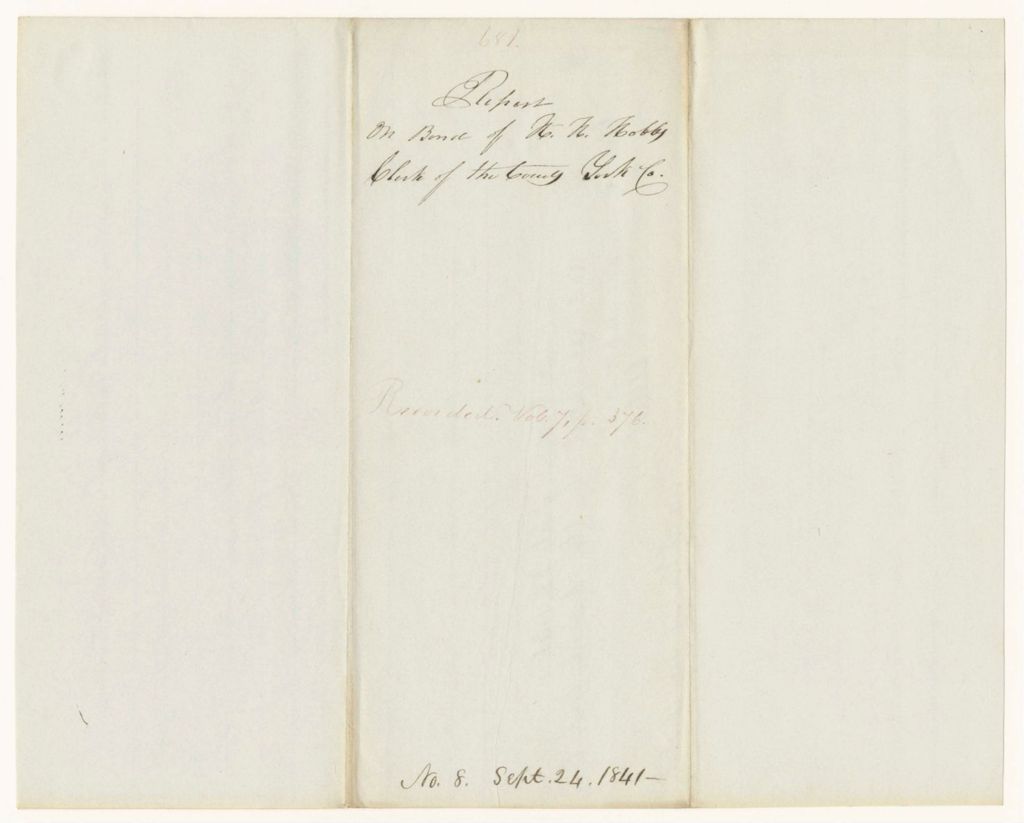 681.
Report
On Bond of H. H. Hobbs
Clerk of the Courts York Co.
Recorded. Vol. 7, p. 376.
No. 8. Sept. 24. 1841—